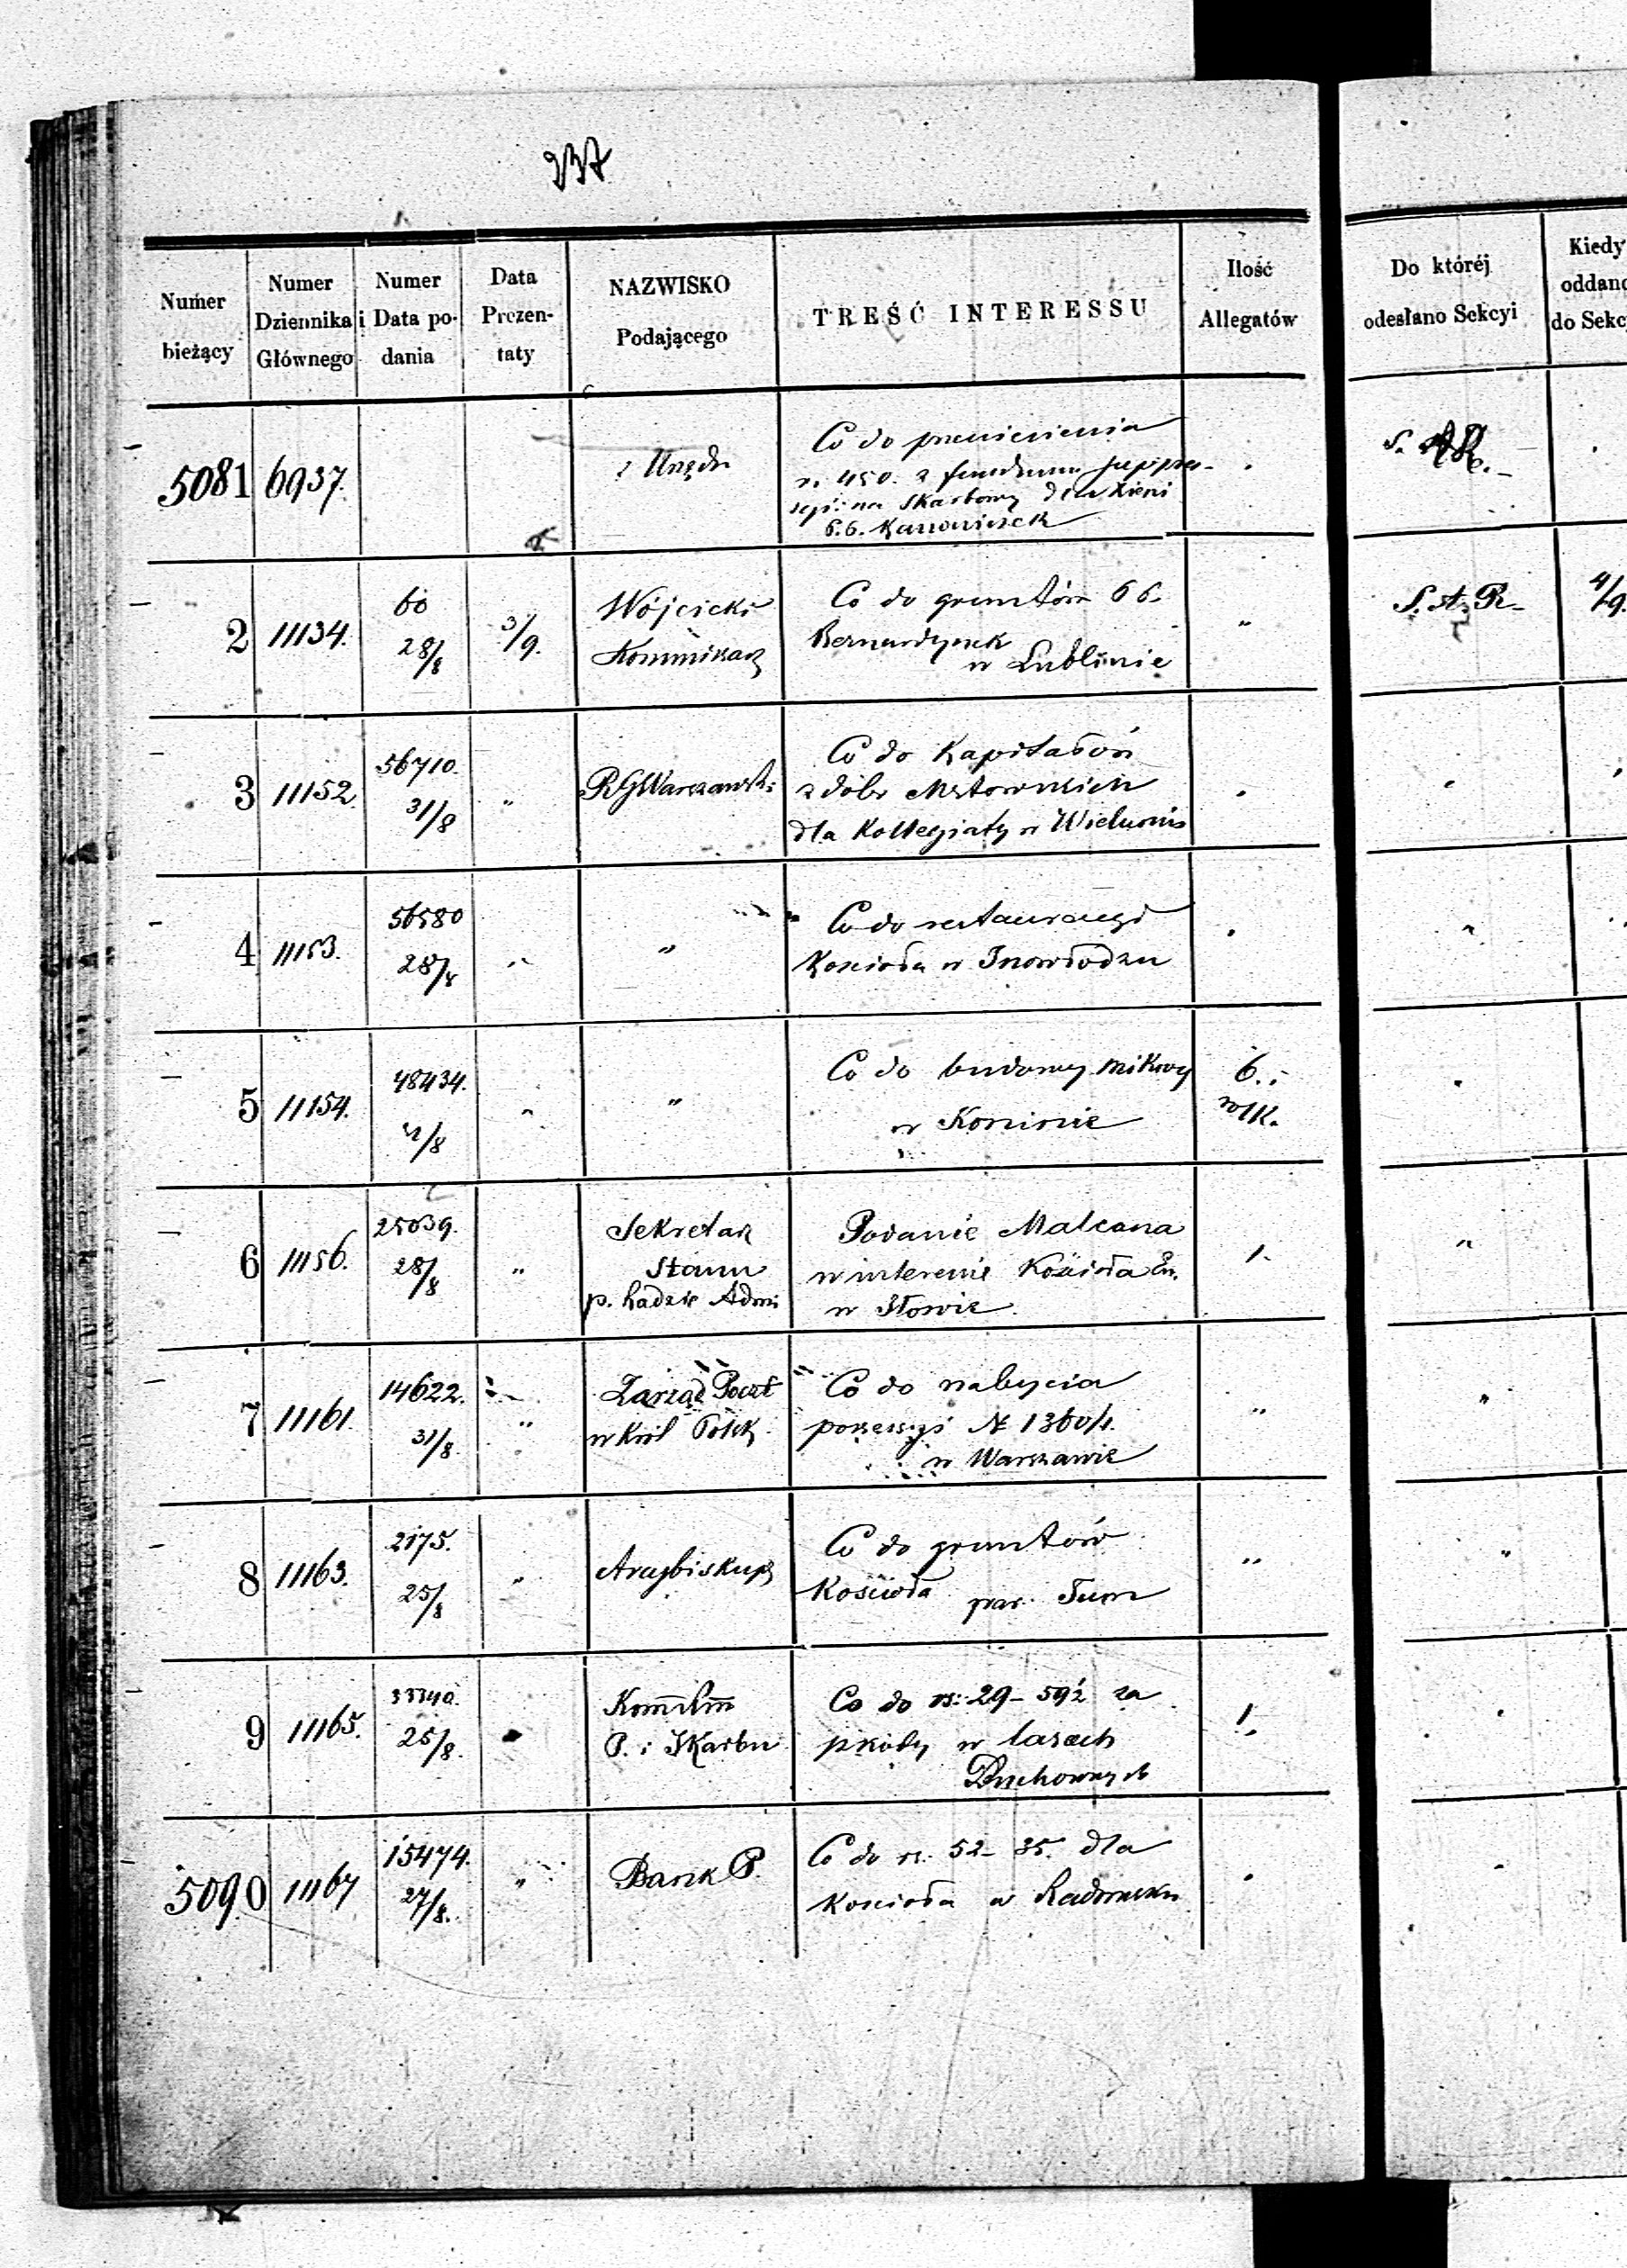 Numer bieżący
Numer Dziennika Głównego
Numer i Data podania
Data Prezentaty
NAZWISKO Podającego
TREŚĆ INTERESSU
Ilość Allegatów
Do któréj odesłano Sekcyi
Kiedy oddano do Sekc
5081 6937.
z Urzędu
Co do przeniesienia
r. 450. z funduszu
na Skarbowy dla Xieni
6.6. Kanoniczek
2 11134. 60 28/8 3/9.
Wójcicki
Kommisarz
Co do gruntów 66.
Bernardynek
w Lublinie
"
S. A. R.
4/9.
3 11152. 56710. 31/8 "
RGWarszawski
Co do Kapitałów
z dóbr Mstowskich
dla Kollegiaty w Wieluniu
4 11153. 56580 28/8 "
"
Co do restauracyi
Kościoła w Inowłodzu
"
5 11154. 48434. /8 "
"
Co do budowy mikwy
w Koninie
6.
"
6 11156. 25039. 28/8 "
Sekretarz
Stanu
p. Radzie Admi
Podanie Malcana
w interesie Kościoła Ew.
w Iłowie
1.
"
7 11161. 14622. 31/8. "
Zarząd Poczt
w Król Polsk.
Co do nabycia
possessyi N 1360/1.
w Warszawie
"
"
8 11163. 2175. 25/8 "
Arcybiskup
Co do gruntów
Kościoła par. Tum
"
"
9 11165. 33340. 25/8.
P. i Skarbu
Co do rs: 29-59½ za
szkody w lasach
Duchownych
1.
5090 11167 15474. 27/8. "
Bank P.
Co do rs. 52-35. dla
Kościoła w Radomsku